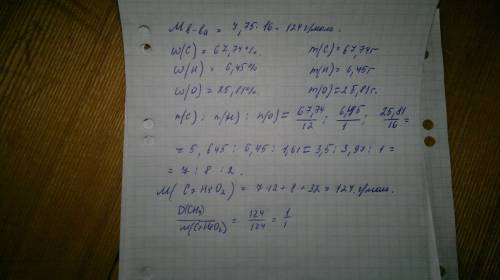 M в-ва = 7,75·16 = 124 г/моль.
w(C) = 67,74%. m(C) = 67,74г
w(H) = 6,45% m(H) = 6,45г
w(O) = 25,81% m(O) = 25,81г.
n(C) : n(H) : n(O) = 67,74/12 : 6,45/1 : 25,81/16 =
= 5,645 : 6,45 : 1,61 = 3,5 : 3,97 : 1 =
= 7 : 8 : 2.
M(C7H8O2) = 7·12 + 8 + 32 = 124 г/моль.
/M(C7H8O2) = 124/124 = 1/1